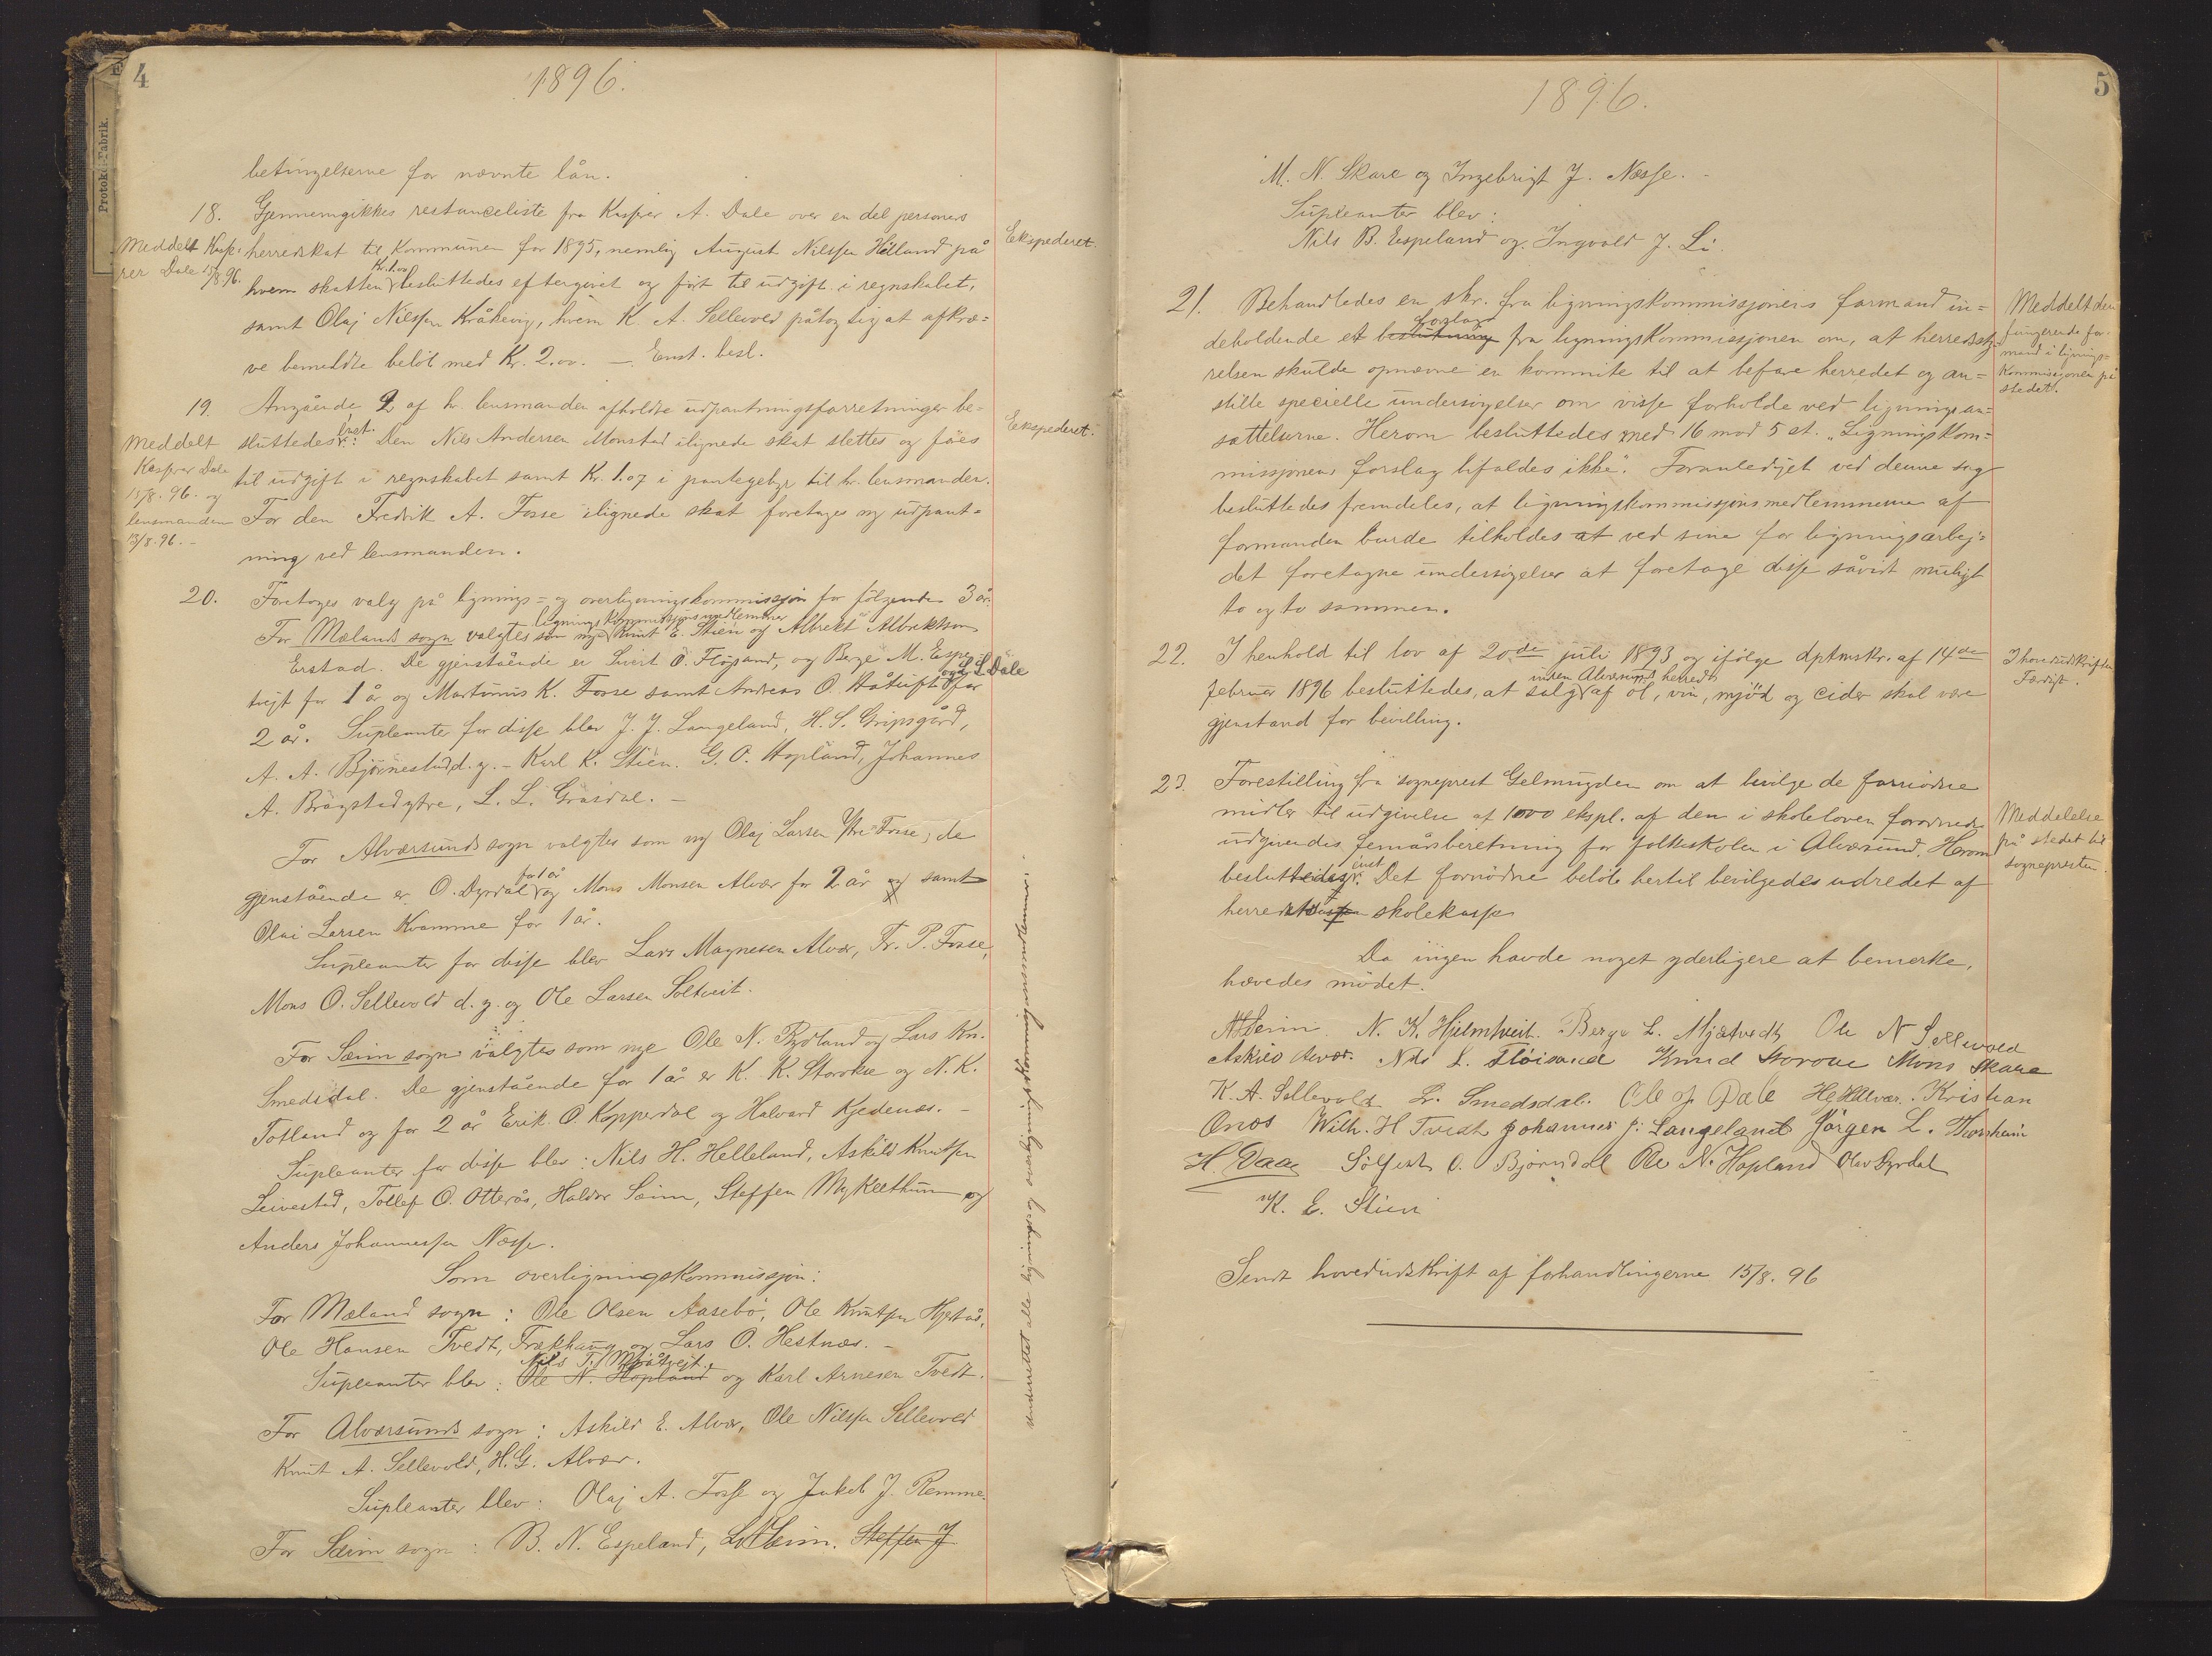 4
1896.
betingelserne for nævnte lån.
18. Gjennemgikkes restanceliste fra Kasper A. Dale over en del personers
herredskat til Kommunen for 1895, nemlig August Nilssen Helland på
hvem skatten Kr. 1.00 besluttedes eftergivet og ført til udgift i regnskabet,
samt Olaj Nilssen Kråkevig, hvem K. A. Sellevold påtog sig at afkræ=
ve bemeldte beløb med Kr. 2.00. — Enst. besl.
Meddelt Kaspe-
rer Dale 15/8 96.
Ekspederet.
19. Angående 2 af hr. lensmanden afholdte udpantningsforretninger be=
sluttedes enst.: Den Nils Andersen Monstad ilignede skat slettes og føes
til udgift i regnskabet samt Kr. 1.07 i pantegebyr til hr. lensmanden.
For den Fredrik A. Fosse ilignede skat foretages ny udpant=
ning ved lensmanden.
Meddelt
Kasper Dale
15/8. 96. og
lensmanden
13/8. 96. -
Ekspederet.
20. Foretoges valg på lignings= og overligningskommissjon for følgende 3 år.
For Mælands sogn valgtes som nye ligningskommissjonsmedlemmer Knut E. Stien og Albrekt Albrektson
Erstad. De gjenstående er Sivert O. Fløjsand, og Berge M. Espe-
tvejt for 1 år og Martinus K. Fosse samt Andreas O. Håtuft og L. L. Dale for
2 år. Supleante for disse blev J. J. Langeland, H. S. Gripsgård,
A. A. Bjørnestad d. y. - Karl K. Stien. G. O. Hopland, Johannes
A. Brøgstad ytre, L. L. Gråsdal. -
For Alværsunds sogn valgtes som ny Olaj Larsen Ytre-Fosse, de
gjenstående er O. Dyrdal for 1 år og Mons Monsen Alvær for 2 år og samt
Olai Larsen Kvamme for 1 år.
Supleanter for disse blev Lars Magnesen Alvær, Fr. P. Fosse,
Mons O. Sellevold d. y. og Ole Larsen Soltveit.
For Sæim sogn valgtes som nye Ole N. Rydland og Lars Kn.
Smedsdal. De gjenstående for 1 år er K. K. Storokse og N. K.
Totland og for 2 år Erik O. Kopperdal og Halvard Kjedenæs. -
Supleanter for disse blev: Nils H. Helleland, Askild Knutsen
Leivestad, Tollef O. Otterås, Haldor Sæim, Steffen Mykletthun og
Anders Johannessen Næsse.
Som overligningskommissjon:
For Mæland sogn: Ole Olsen Aasebø, Ole Knutsen Hystad,
Ole Hansen Tvedt, Frækhaug og Lars O. Hestnæs. -
Supleanter blev: Ole N. Hopland Nils T. Mjåtvejt og Karl Arnesen Tvedt.
For Alværsunds sogn: Askild E. Alvær, Ole Nilssen Sellevold
Knut A. Sellevold, H. G. Alvær.
Supleanter blev: Olaj A. Fosse og Jakob J. Remme.
For Sæim sogn: B. N. Espeland, L. Sæim. Steffen J
5
1896.
M. N. Skare og Ingebrigt J. Næsse. -
Supleanter blev:
Nils B. Espeland og Ingvald J. Li.
21. Behandledes en skr. fra ligningskommissjonens formand in=
deholdende et beslutning forslag fra ligningskommissjonen om, at herredssty-
relsen skulde opnævne en kommite til at befare herredet og an=
stille specielle undersøgelser om visse forholde ved ligningsan=
sættelserne. Herom besluttedes med 16 mod 5 st. „Ligningskom=
missjonens forslag bifaldes ikke". Foranlediget ved denne sag
besluttedes fremdeles, at ligningskommissjonsmedlemmerne af
formanden burde tilholdes at ved sine for ligningsarbej=
det foretagne undersøgelser at foretage disse såvidt muligt
to og to sammen.
Meddelt den
fungerende for-
mand i lignings=
kommissjonen på
stedet.
22. I henhold til lov af 20de juli 1893 og ifølge dptmskr. af 14de
februar 1896 besluttedes, at salg inden Alværsunds herred af øl, vin, mjød og cider skal være
gjenstand for bevilling.
I hovedudskriften
Færdigt.
23. Forestilling fra sogneprest Gelmuyden om at bevilge de fornødne
midler til udgivelse af 1000 ekspl. af den i skoleloven forordnede
udgivendes femårsberetning for folkeskolen i Alværsund. Herom
besluttedes enst: Det fornødne beløb hertil bevilgedes udredet af
herredskassen skolekasse
Meddelelse
på stedet til
sognepresten.
Da ingen havde noget yderligere at bemerke,
hævedes mødet.
N. K. Hjelmtveit. Berge L. Mjåtvedt Ole N Sellevold
Askild Alvær. Nils L. Fløisand Knud Storoxe Mons Skare
K. A. Sellevold L. Smedsdal. Ole J Dale H G Alvær. Kristian
Onos Wilh. H Tvedt Johannes J: Langeland Jørgen L. Thorsheim
H. Daae Sølfest O. Bjørndal Ole N. Hopland Olav Dyrdal
K. E. Stien
Sendt hovedudskrift af forhandlingerne 15/8. 96